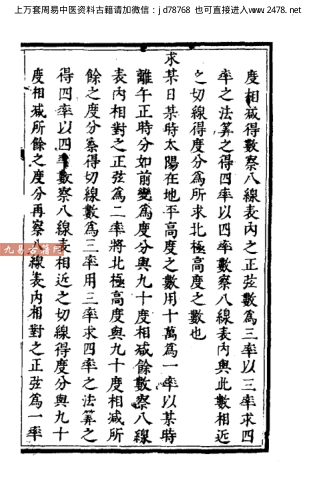 上万套周易中医资料古籍请加微信：jd78768 也可直接进入www.2478.net
度相减得數察八線表內之正弦數為三率以三率求四
率之法算之得四率以四率數察八線表內與此數相近
之切線得度分為所求北極高度之數也
求某日某時太陽在地平高度之數用十萬為一率以某時
離午正時分如前變為度分與九十度相减餘數察八線
表內相對之正弦為二率將北極高度與九十度相减所
餘之度分察得切線數為三率用三率求四率之法算之
得四率以四率數察八線表相近之切線得度分與九十
度相减所餘之度分再察八線表內相對之正弦為一率
九易古籍